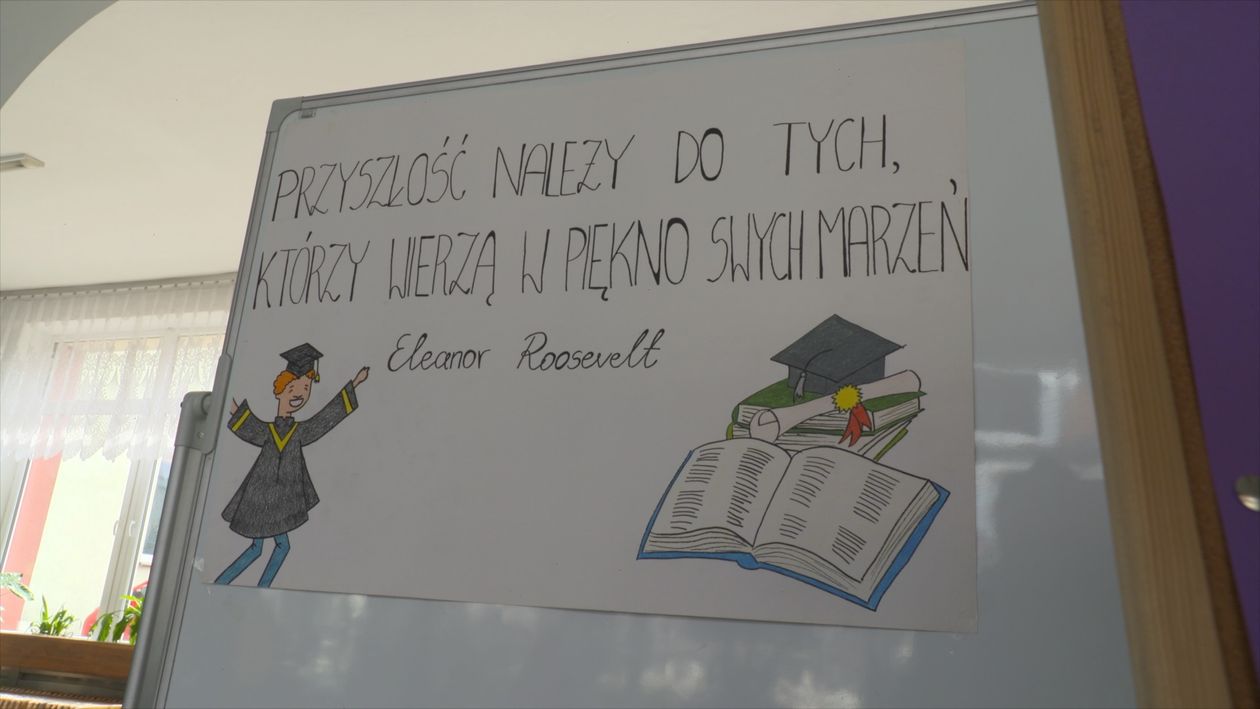 PRZYSZŁOŚĆ NALEŻY DO TYCH,
KTÓRZY WIERZĄ W PIĘKNO SWYCH MARZEŃ
Eleanor Roosevelt